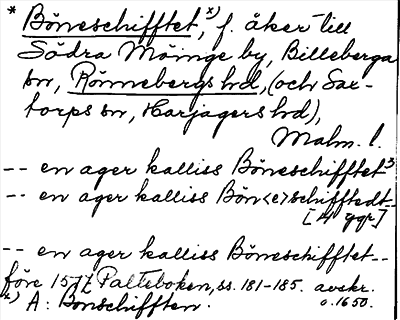 * Böneschifftet, x) f. åker till
Södra Möinge by, Billeberga
sn, Rönnebergs hd, (och Sax-
torps sn, Harjagers hd),
Malm. l.
-- en ager kalliss Böneschifftet 3
-- en ager kalliss Bön<e>schifftedt--
[4 ggr]
-- en ager kalliss Böneschifftet--
före 1577 Palteboken, ss. 181-185. avskr.
x) A: Bonschifften. o. 1650.